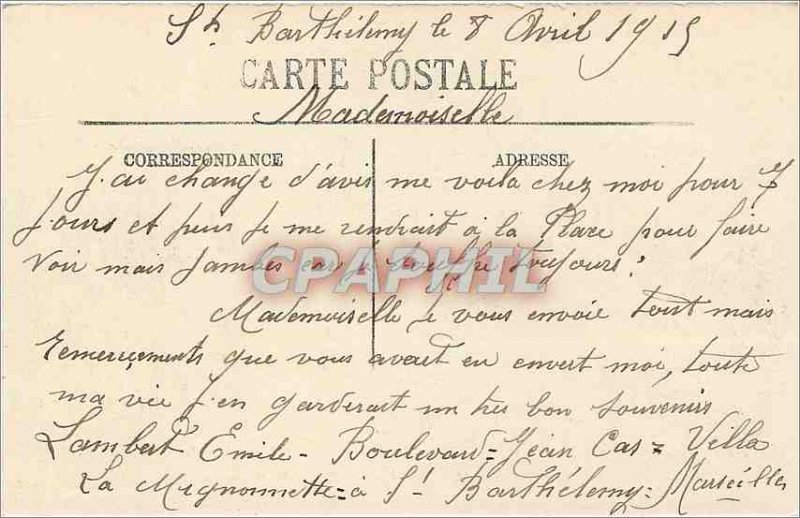 St Barthélemy le 8 Avril 1915
CARTE POSTALE
Mademoiselle
CORRESPONDANCE ADRESSE
J'ai change d'avis me voila chez moi pour 7
Jours et puis Je me rendrait à la Place pour faire
voir mais Jambes souffre toujours.
CPAPHIL
Mademoiselle Je vous envoie tout mais
remerciements que vous avait eu envert moi, toute
ma vie J'en garderait un tres bon souvenirs
Lambert Emile - Boulevard = Jean Cas = Villa
La Mignonnette = à St Barthélemy = Marseille